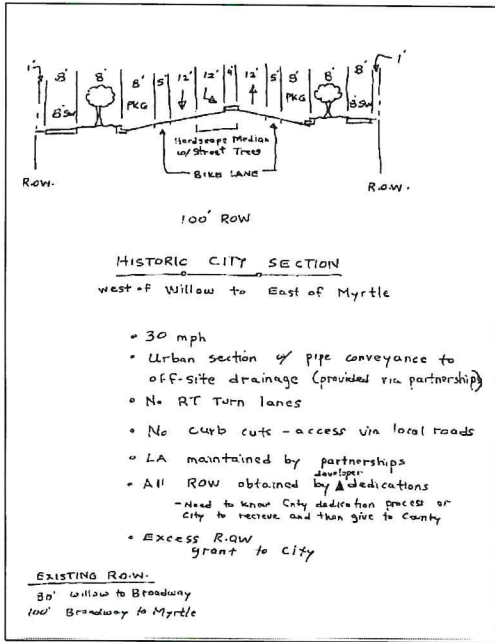 1' 8' 8' 8' 5' 12' 12' 4' 12' 5' 8' 8' 8' 1'
8' SW PKG PKG 8' SW
Hardscape Median
w/ Street Trees
BIKE LANE
R.O.W. R.O.W.
100' ROW
HISTORIC CITY SECTION
west of Willow to East of Myrtle
• 30 mph
• Urban section w/ pipe conveyance to
off-site drainage (provided via partnership)
• No RT Turn lanes
• No curb cuts - access via local roads
• LA maintained by partnerships
developer
• All ROW obtained by dedications
- Need to know Cnty dedication process or
City to recieve and then give to County
• Excess R.O.W
grant to City
EXISTING R.O.W.
80' Willow to Broadway
100' Broadway to Myrtle